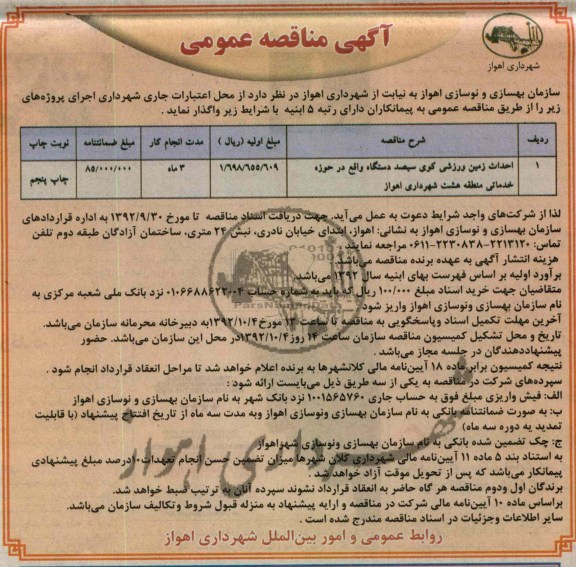 آگهی مناقصه عمومی
شهرداری اهواز
سازمان بهسازی و نوسازی اهواز به نیابت از شهرداری اهواز در نظر دارد از محل اعتبارات جاری شهرداری اجرای پروژه‌های
زیر را از طریق مناقصه عمومی به پیمانکاران دارای رتبه ۵ ابنیه با شرایط زیر واگذار نماید .
ردیف شرح مناقصه مبلغ اولیه (ریال) مدت انجام کار مبلغ ضمانتنامه نوبت چاپ
۱ احداث زمین ورزشی کوی سیصد دستگاه واقع در حوزه ۱/۶۹۸/۶۵۵/۶۰۹ ۳ ماه ۸۵/۰۰۰/۰۰۰
خدماتی منطقه هشت شهرداری اهواز چاپ پنجم
لذا از شرکت‌های واجد شرایط دعوت به عمل می‌آید. جهت دریافت اسناد مناقصه تا مورخ ۱۳۹۲/۹/۳۰ به اداره قراردادهای
سازمان بهسازی و نوسازی اهواز به نشانی: اهواز، ابتدای خیابان نادری، نبش ۲۴ متری، ساختمان آزادگان طبقه دوم تلفن
تماس: ۲۲۱۳۱۲۰-۲۲۳۰۸۳۸-۰۶۱۱ مراجعه نمایند.
هزینه انتشار آگهی به عهده برنده مناقصه می‌باشد.
برآورد اولیه بر اساس فهرست بهای ابنیه سال ۱۳۹۲ می‌باشد.
متقاضیان جهت خرید اسناد مبلغ ۱۰۰/۰۰۰ ریال که باید به شماره حساب ۰۱۰۶۶۸۸۶۲۲۰۰۴ نزد بانک ملی شعبه مرکزی به
نام سازمان بهسازی ونوسازی اهواز واریز شود
آخرین مهلت تکمیل اسناد وپاسخگویی به مناقصه تا ساعت ۱۳ مورخ ۱۳۹۲/۱۰/۴به دبیرخانه محرمانه سازمان می‌باشد.
تاریخ و محل تشکیل کمیسیون مناقصه سازمان ساعت ۱۴ روز ۱۳۹۲/۱۰/۴در محل این سازمان می‌باشد. حضور
پیشنهاددهندگان در جلسه مجاز می‌باشد .
نتیجه کمیسیون برابر ماده ۱۸ آیین‌نامه مالی کلانشهرها به برنده اعلام خواهد شد تا مراحل انعقاد قرارداد انجام شود .
سپرده‌های شرکت در مناقصه به یکی از سه طریق ذیل می‌بایست ارائه شود :
الف: فیش واریزی مبلغ فوق به حساب جاری ۱۰۰۱۵۶۵۷۶۰ نزد بانک شهر به نام سازمان بهسازی و نوسازی اهواز
ب: به صورت ضمانتنامه بانکی به نام سازمان بهسازی ونوسازی اهواز وبه مدت سه ماه از تاریخ افتتاح پیشنهاد (با قابلیت
تمدید به دوره سه ماه)
ج: چک تضمین شده بانکی به نام سازمان بهسازی ونوسازی شهراهواز
به استناد بند ۵ ماده ۱۱ آیین‌نامه مالی شهرداری کلان شهرها میزان تضمین حسن انجام تعهدات۱۰درصد مبلغ پیشنهادی
پیمانکار می‌باشد که پس از تحویل موقت آزاد خواهد شد .
برندگان اول ودوم مناقصه هر گاه حاضر به انعقاد قرارداد نشوند سپرده آنان به ترتیب ضبط خواهد شد.
براساس ماده ۱۰ آیین‌نامه مالی شرکت در مناقصه و ارایه پیشنهاد به منزله قبول شروط وتکالیف سازمان می‌باشد.
سایر اطلاعات وجزئیات در اسناد مناقصه مندرج شده است .
روابط عمومی و امور بین‌الملل شهرداری اهواز